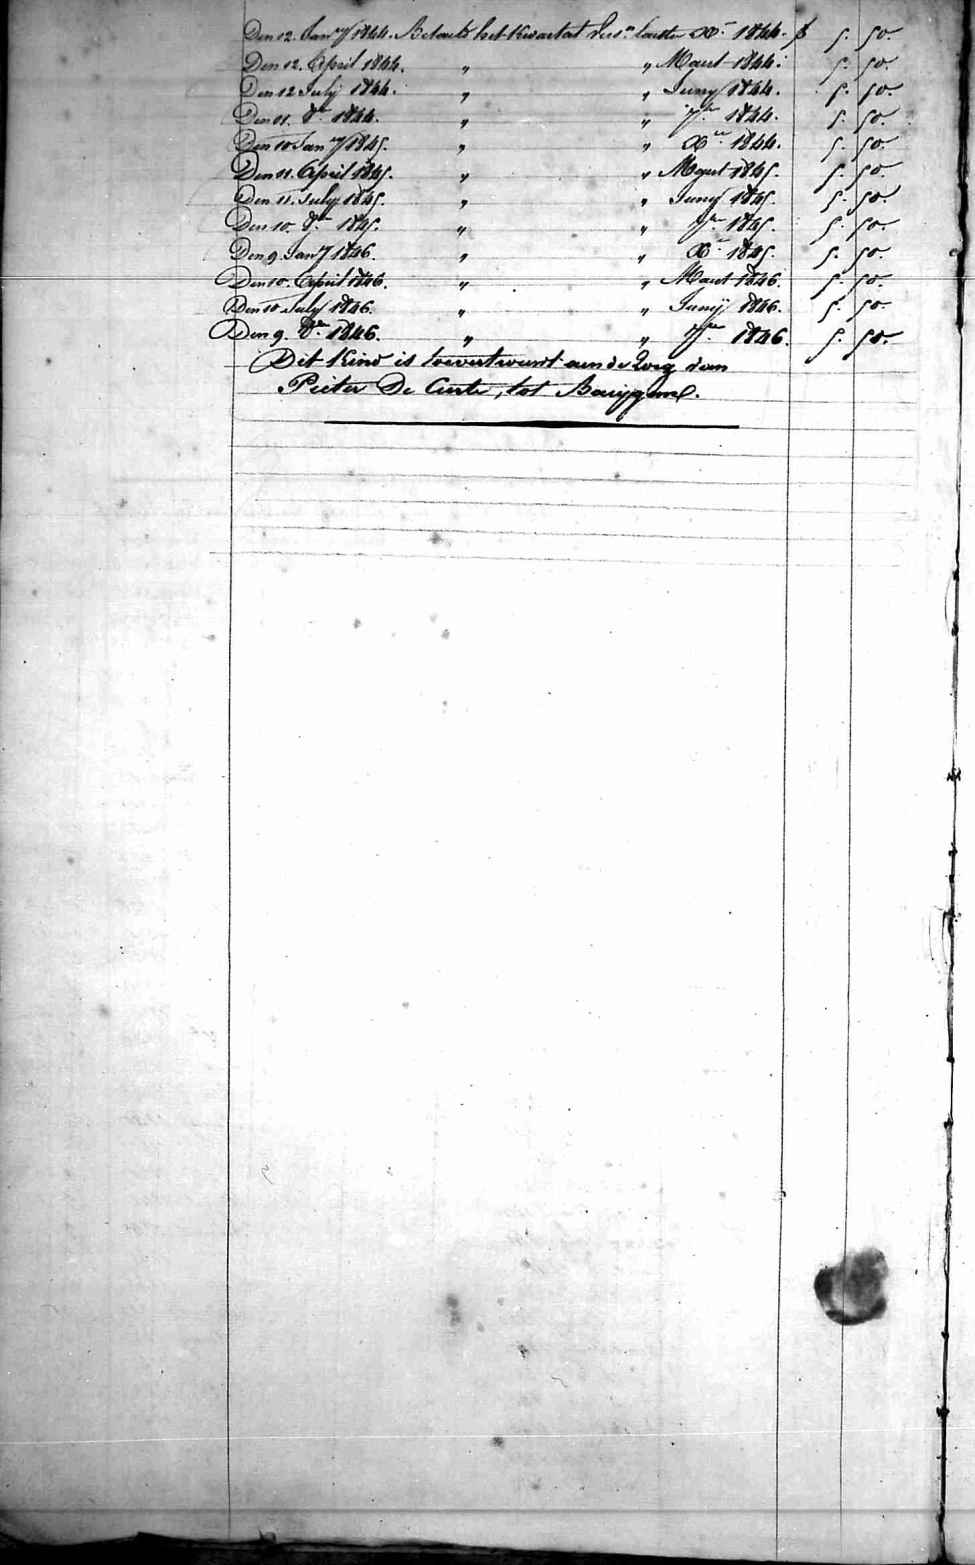 Den 12. Jan.ry 1844. Betaelt het Kwartael leste Xre 1844. f 5. 50.
Den 12. April 1844. " " Maert 1844. 5. 50.
Den 12 July 1844. " " Juny 1844. 5. 50.
Den 11. 8re 1844. " " 7re 1844. 5. 50.
Den 10 Jan.ry 1845. " " Xre 1844. 5. 50.
Den 11. April 1845. " " Maert 1845. 5. 50.
Den 11. July 1845. " " Juny 1845. 5. 50.
Den 10. 8re 1845. " " 7re 1845. 5. 50.
Den 9. Jan.ry 1846. " " Xre 1845. 5. 50.
Den 10. April 1846. " " Maert 1846. 5. 50.
Den 10 July 1846. " " Junij 1846. 5. 50.
Den 9. 8re 1846. " " 7re 1846. 5. 50.
Dit Kind is toevertrouwt aen de Zorg van
Pieter De , tot